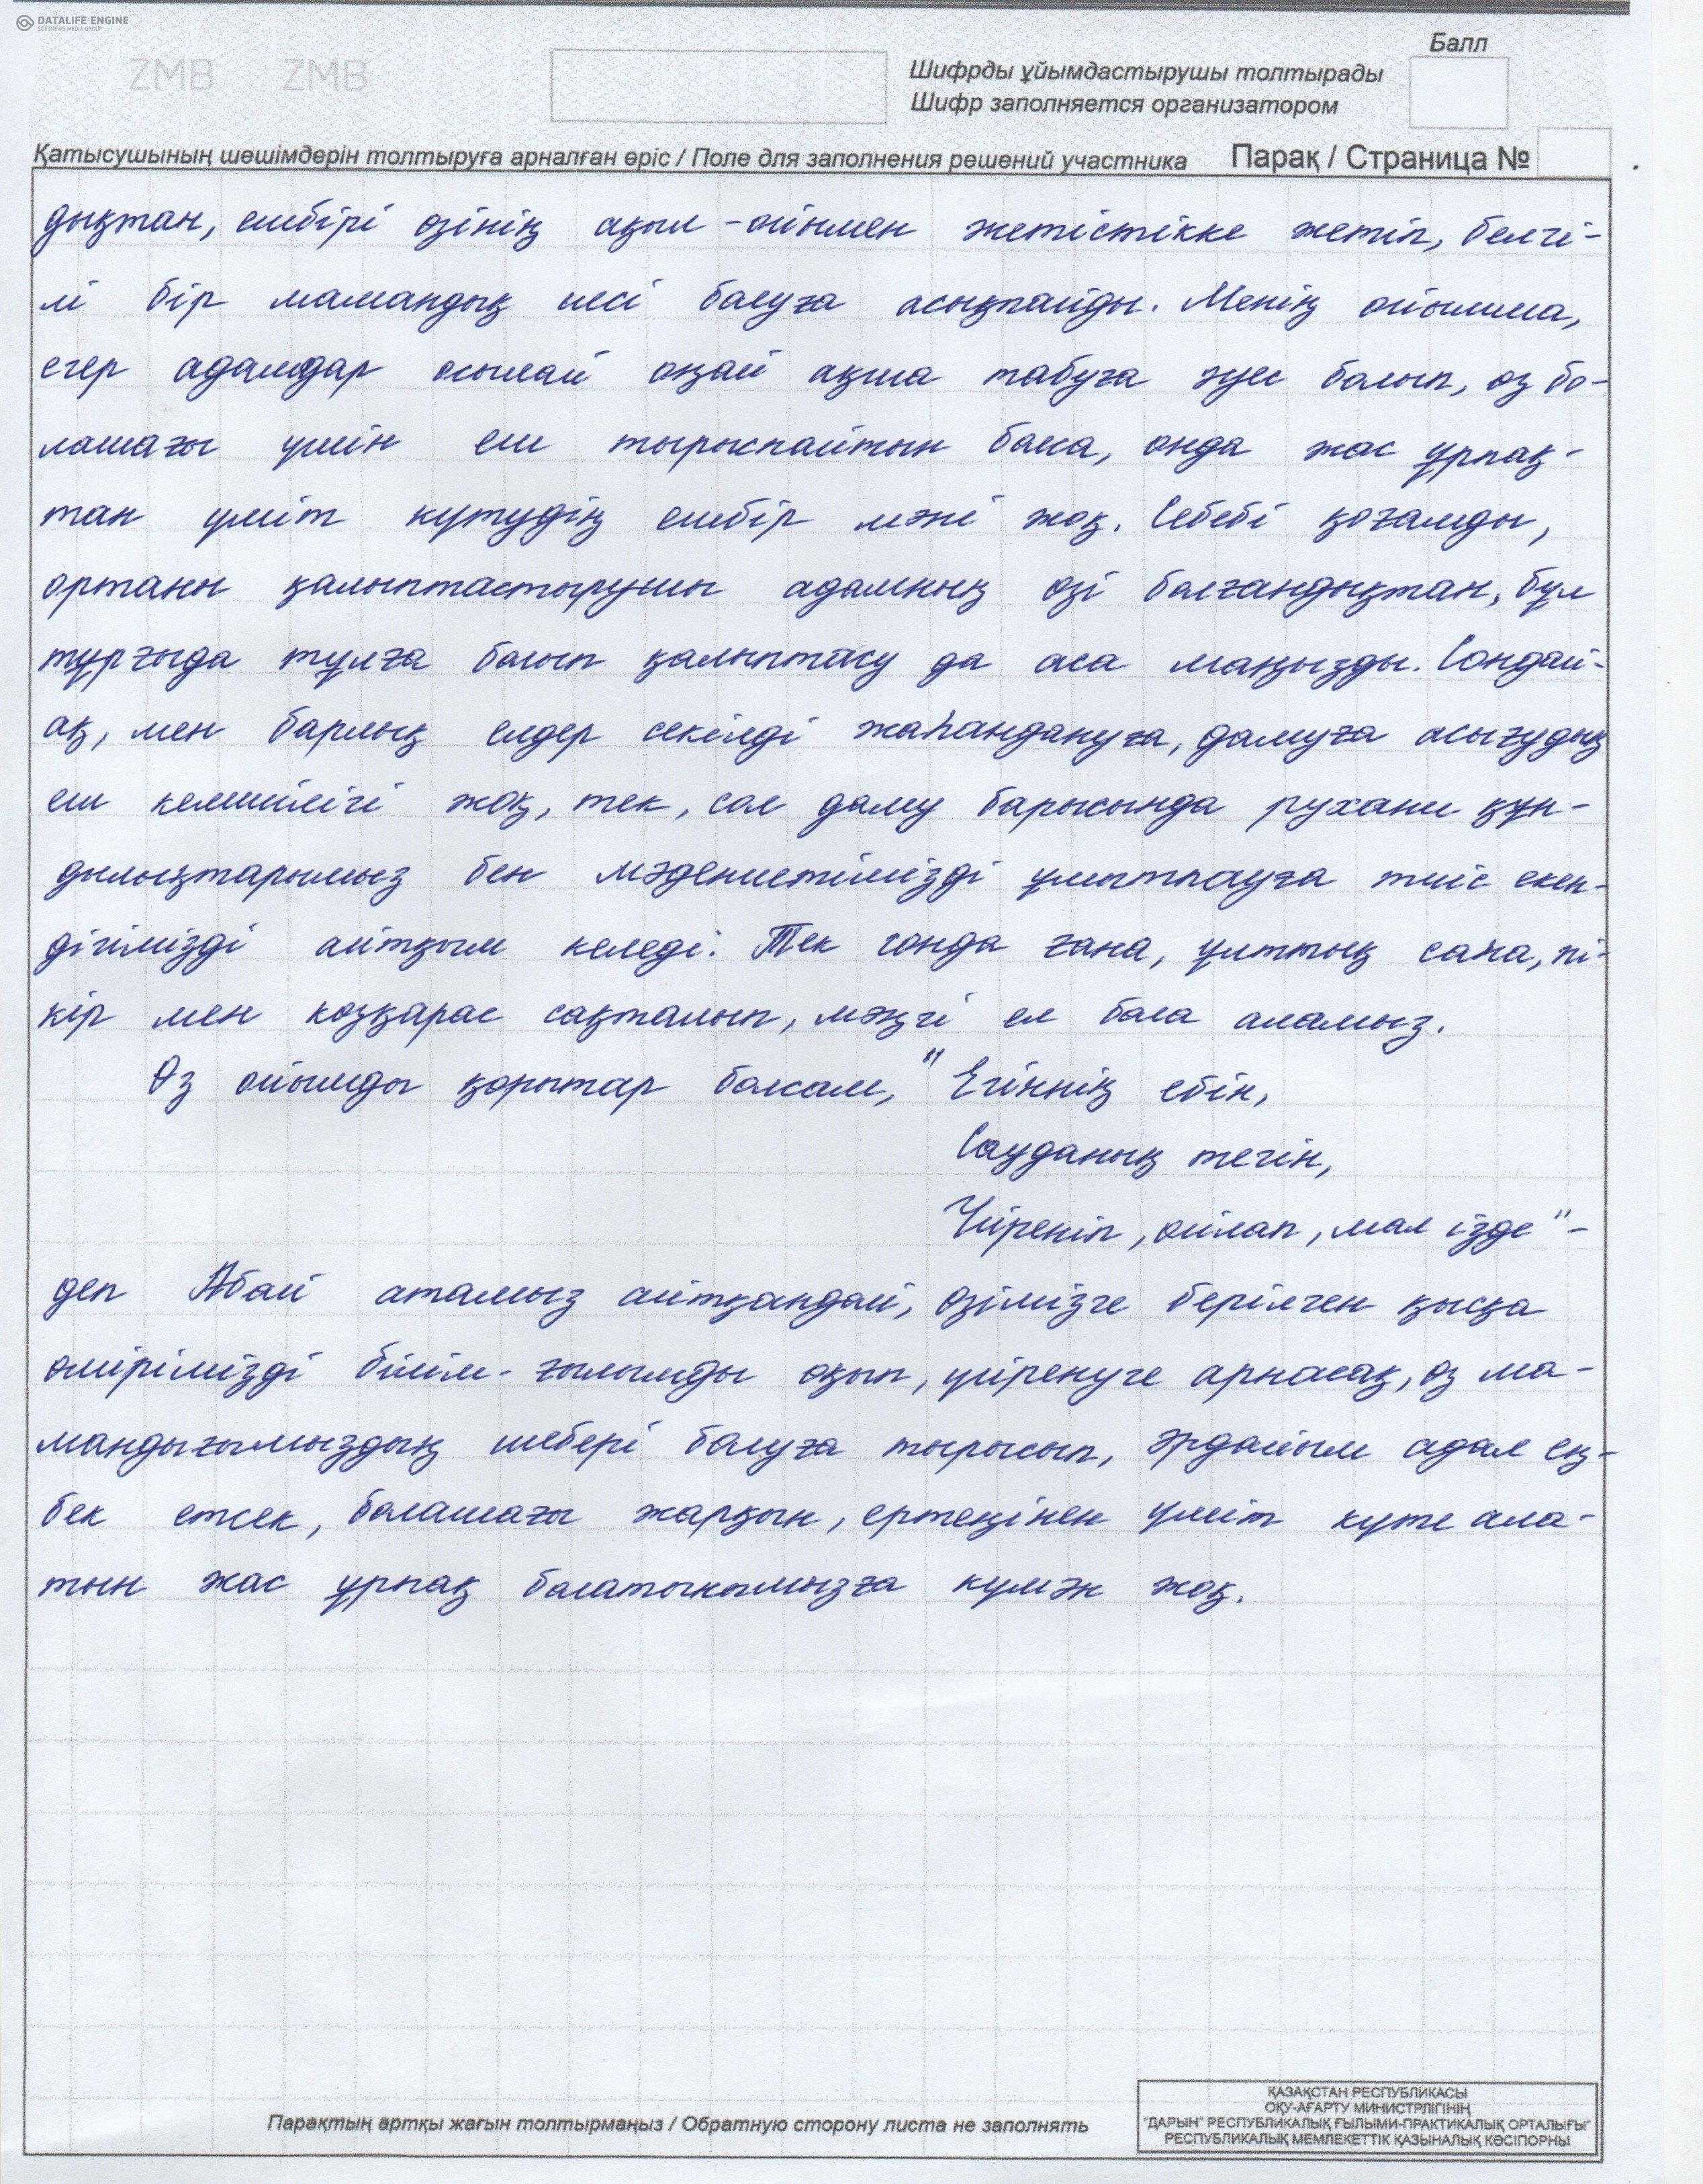 DATALIFE ENGINE
ZMB ZMB
Балл
Шифрды ұйымдастырушы толтырады
Шифр заполняется организатором
Қатысушының шешімдерін толтыруға арналған өріс / Поле для заполнения решений участника Парақ / Страница №
дықтан, ешбірі өзінің ақыл-ойымен жетістікке жетіп, белгі-
лі бір мамандық иесі болуға асықпайды. Менің ойымша,
егер адамдар осылай оңай ақша табуға әуес болып, өз бо-
лашағы үшін еш тырыспайтын болса, онда жас ұрпақ-
тан үміт күтудің ешбір мәні жоқ. Себебі қоғамды,
ортаны қалыптастырушы адамның өзі болғандықтан, бұл
тұрғыда тұлға болып қалыптасу да аса маңызды. Сондай-
ақ, мен барлық елдер секілді жаһандануға, дамуға асығудың
еш кемшілігі жоқ, тек, сол даму барысында рухани құн-
дылықтарымыз бен мәдениетімізді ұмытпауға тиіс екен-
дігімізді айтқым келеді. Тек сонда ғана, ұлттық сана, пі-
кір мен көзқарас сақталып, мәңгі ел бола аламыз.
Өз ойымды қорытар болсам, "Егіннің ебін,
Сауданың тегін,
Үйреніп, ойлап, мал ізде"-
деп Абай атамыз айтқандай, өзімізге берілген қысқа
өмірімізді білім-ғылымды оқып, үйренуге арнасақ, өз ма-
мандығымыздың шебері болуға тырысып, әрдайым адал ең-
бек етсек, болашағы жарқын, ертеңінен үміт күте ала-
тын жас ұрпақ болатынымызға күмән жоқ.
Парақтың артқы жағын толтырмаңыз / Обратную сторону листа не заполнять
ҚАЗАҚСТАН РЕСПУБЛИКАСЫ
ОҚУ-АҒАРТУ МИНИСТРЛІГІНІҢ
"ДАРЫН" РЕСПУБЛИКАЛЫҚ ҒЫЛЫМИ-ПРАКТИКАЛЫҚ ОРТАЛЫҒЫ"
РЕСПУБЛИКАЛЫҚ МЕМЛЕКЕТТІК ҚАЗЫНАЛЫҚ КӘСІПОРНЫ